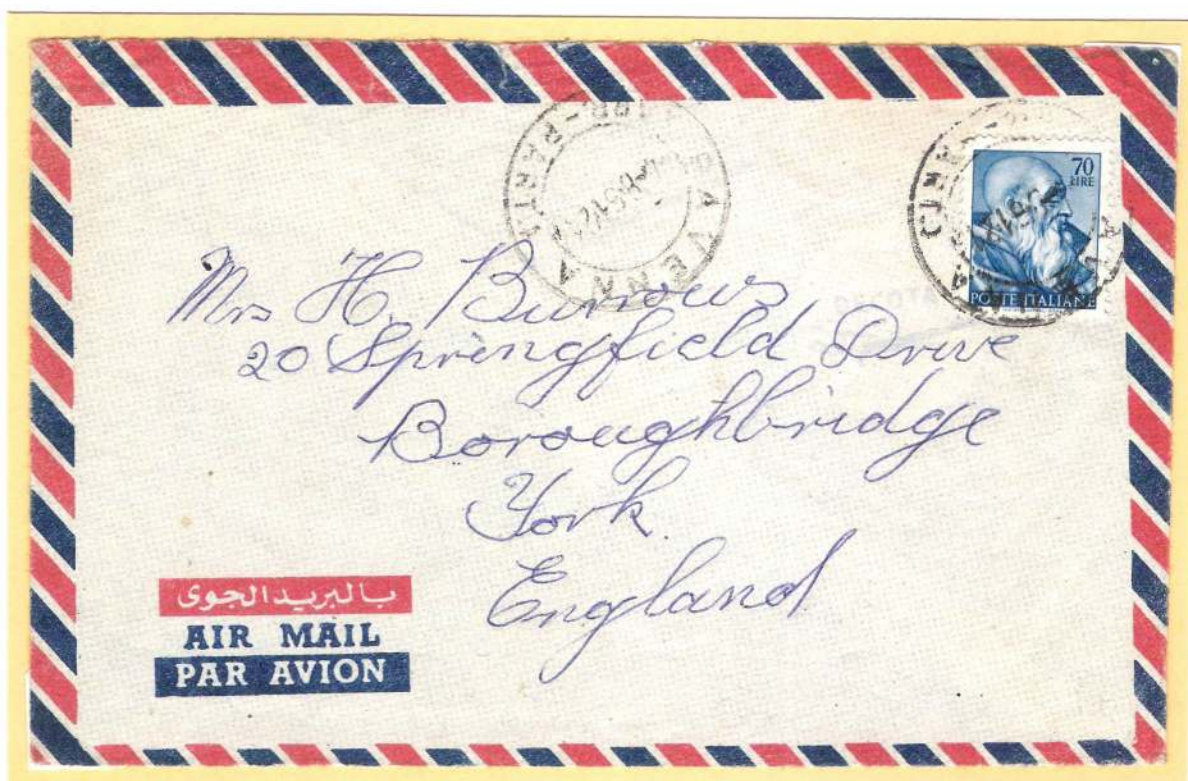 70
LIRE
POSTE ITALIANE
Mrs H. Burrows
20 Springfield Drive
Boroughbridge
York
England
بالبريد الجوى
AIR MAIL
PAR AVION